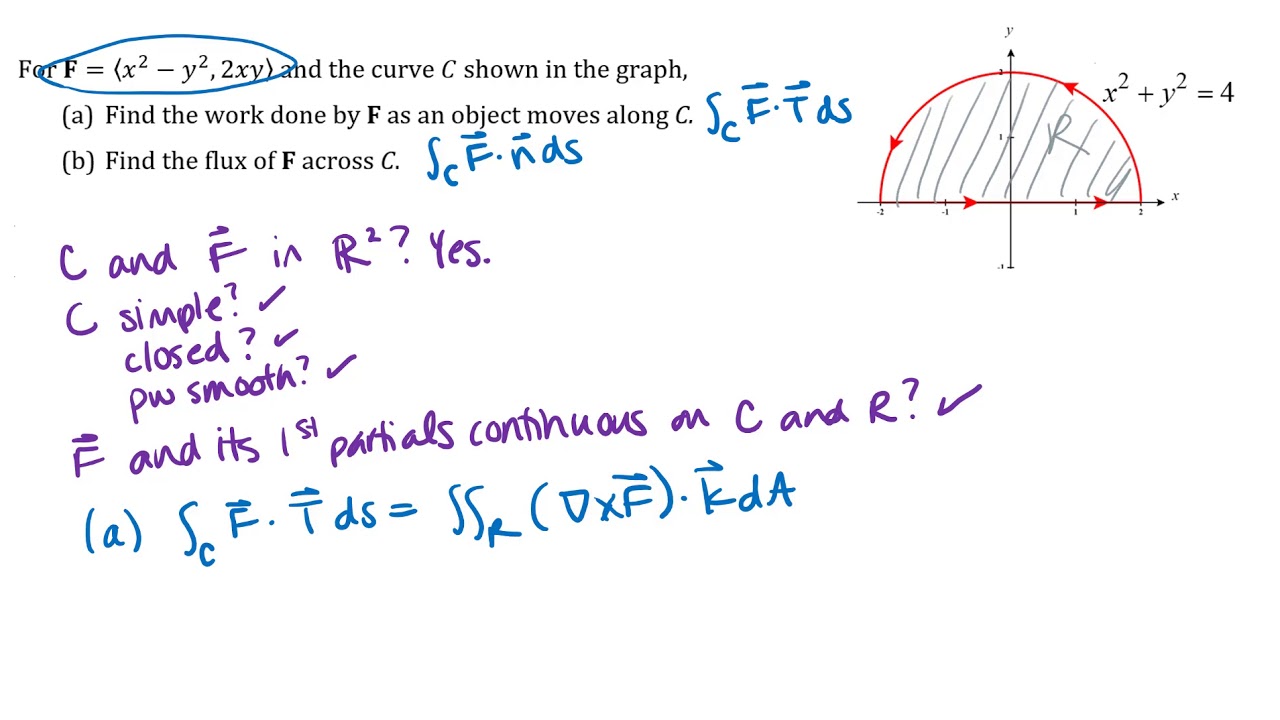 For F = ⟨x² − y², 2xy⟩ and the curve C shown in the graph,
(a) Find the work done by F as an object moves along C. ∫_C F⃗ · T⃗ ds
(b) Find the flux of F across C. ∫_C F⃗ · n⃗ ds
y
x² + y² = 4
2
1
R
x
-2
-1
1
2
-1
C and F⃗ in ℝ²? Yes.
C simple? ✓
closed? ✓
pw smooth? ✓
F⃗ and its 1st partials continuous on C and R? ✓
(a) ∫_C F⃗ · T⃗ ds = ∬_R (∇ × F⃗) · k⃗ dA